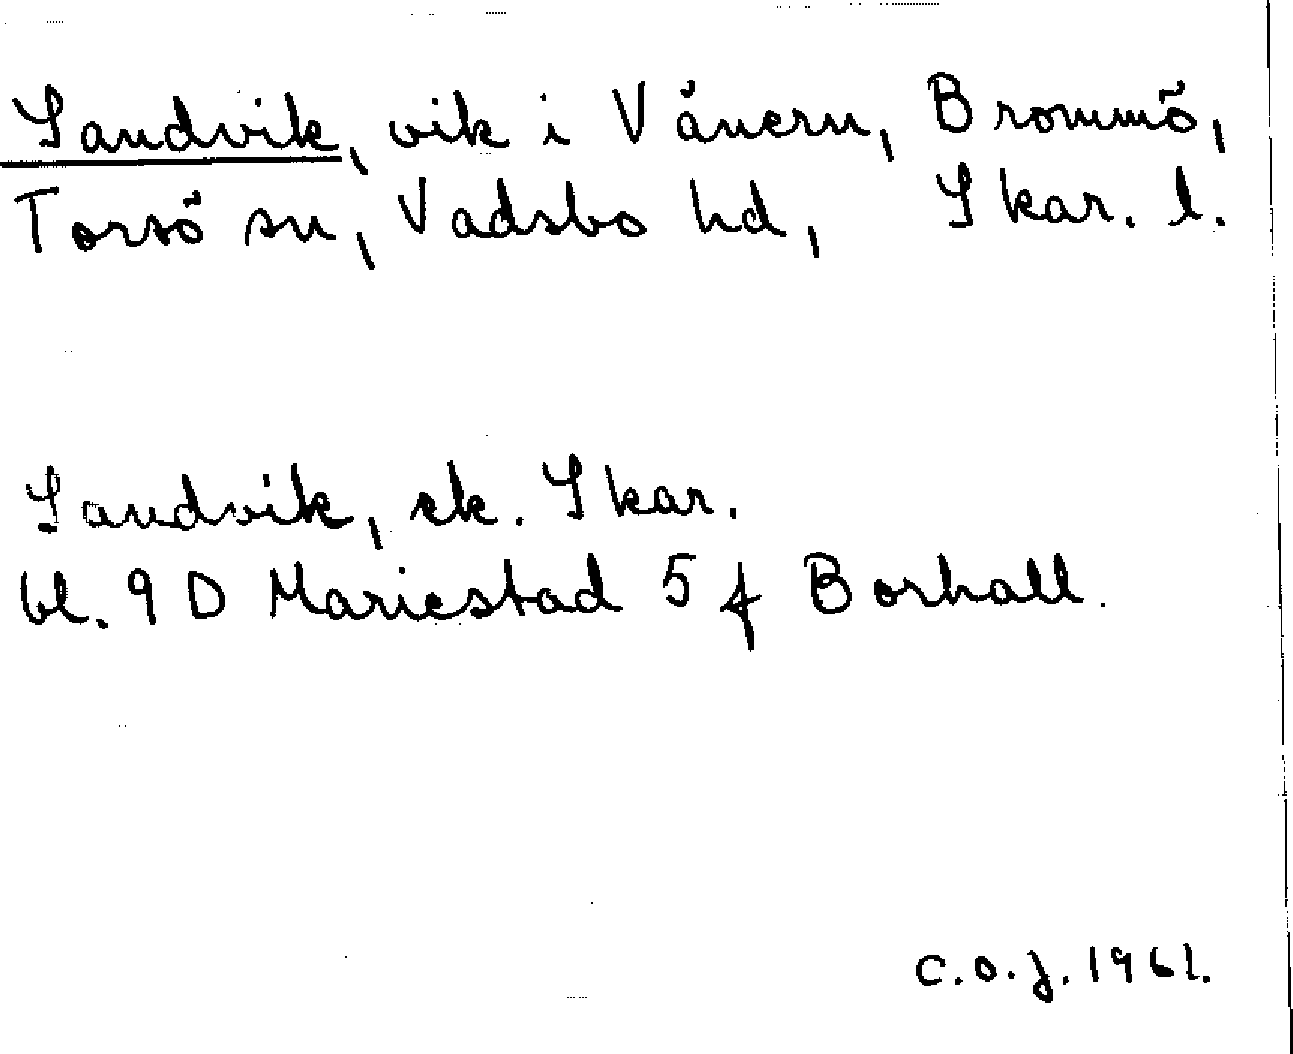 Sandvik, vik i Vänern, Brommö,
Torsö sn, Vadsbo hd, Skar. l.
Sandvik, ek. Skar.
bl. 9 D Mariestad 5 f Borhall.
C.O.J. 1961.